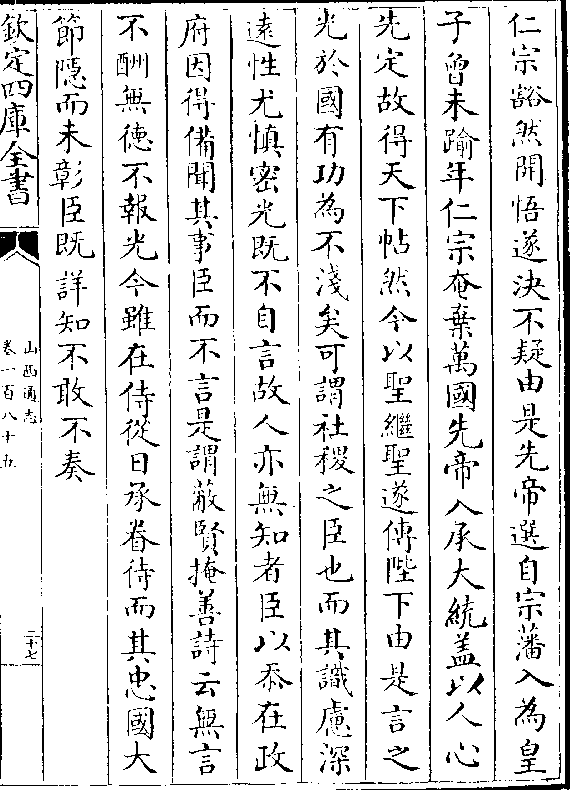 仁宗豁然開悟遂決不疑由是先帝選自宗藩入為皇
子曾未踰年仁宗奄棄萬國先帝入承大統盖以人心
先定故得天下帖然今以聖繼聖遂傳陛下由是言之
光於國有功為不淺矣可謂社稷之臣也而其識慮深
逺性尤慎密光既不自言故人亦無知者臣以忝在政
府因得備聞其事臣而不言是謂蔽賢掩善詩云無言
不酬無徳不報光今雖在侍從日承眷待而其忠國大
節隱而未彰臣既詳知不敢不奏
欽定四庫全書
山西通志
卷一百八十五
二十七